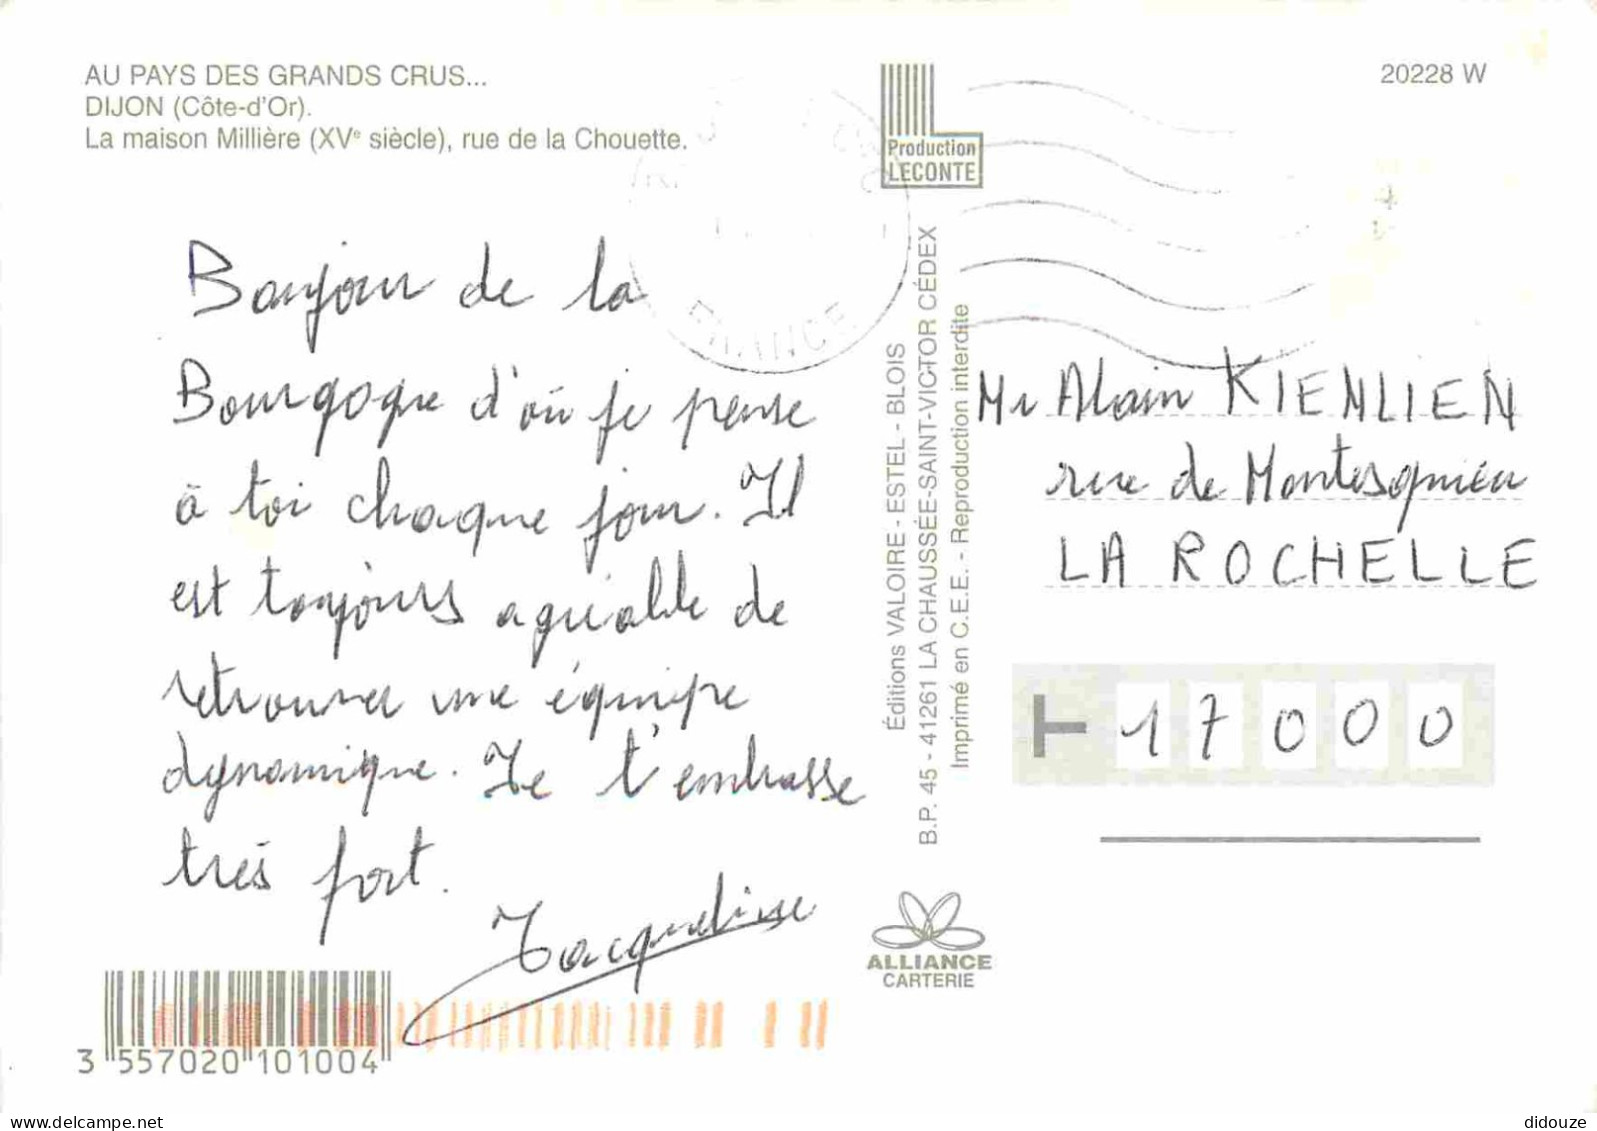 AU PAYS DES GRANDS CRUS...
DIJON (Côte-d'Or).
La maison Millière (XVe siècle), rue de la Chouette.
20228 W
Production
LECONTE
Bonjour de la
Bourgogne d'où je pense
à toi chaque jour. Il
est toujours agréable de
retrouver une équipe
dynamique. Je t'embrasse
très fort.
Jacqueline
FRANCE
Éditions VALOIRE - ESTEL - BLOIS
B.P. 45 - 41261 LA CHAUSSÉE-SAINT-VICTOR CÉDEX
Imprimé en C.E.E. - Reproduction interdite
Mr Alain KIENLIEN
rue de Montesquieu
LA ROCHELLE
17000
ALLIANCE
CARTERIE
3 557020 101004
didouze